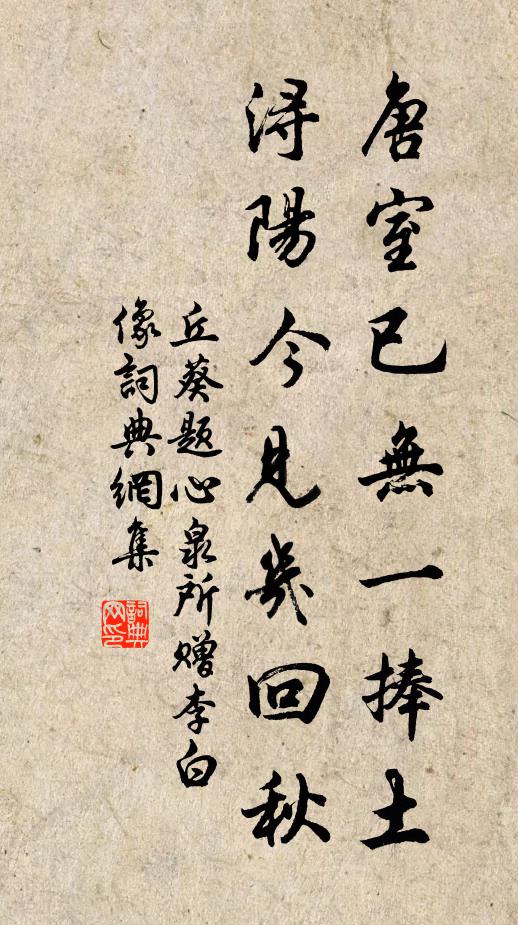 唐室已無一捧土
潯陽今見幾回秋
丘葵題心泉所赠李白
像詞典網集
詞典
网印